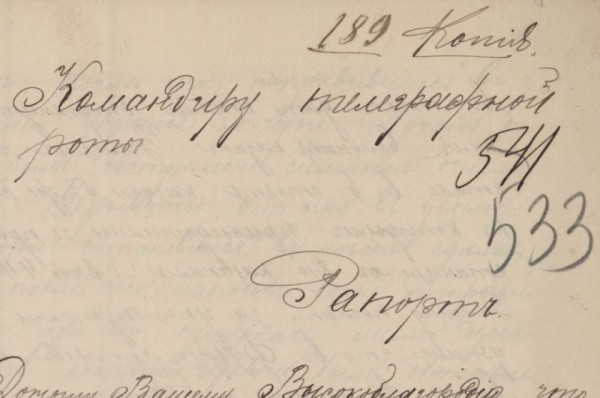 189 Копія.
Командиру телеграфной
роты
541
533
Рапортъ.
Вашему Высокоблагородію что